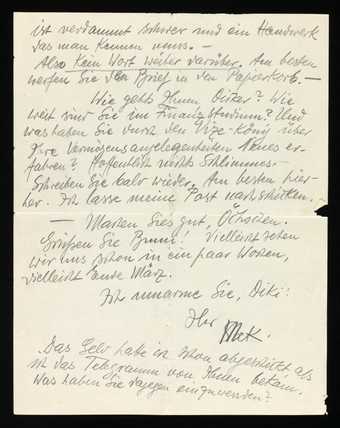 ist verdammt schwer und ein Handwerk
das man kennen muss. —
Also kein Wort weiter darüber. Am besten
werfen Sie den Brief in den Papierkorb. —
Wie gehts Ihnen, ? Wie
weit sind Sie im Finanzstudium? Und
was haben Sie durch den Vize-König über
Ihre Vermögensangelegenheiten Neues er-
fahren? Hoffentlich nichts Schlimmes.
Schreiben Sie bald wieder. Am besten hier-
her. Ich lasse meine Post nachschicken. —
— Machen Sies gut,
Grüßen Sie Vielleicht sehen
wir uns schon in ein paar Wochen,
vielleicht Ende März.
Ich umarme Sie,
Ihr
Das Geld habe ich schon abgeschickt als
ich das Telegramm von Ihnen bekam.
Was haben Sie dagegen einzuwenden?